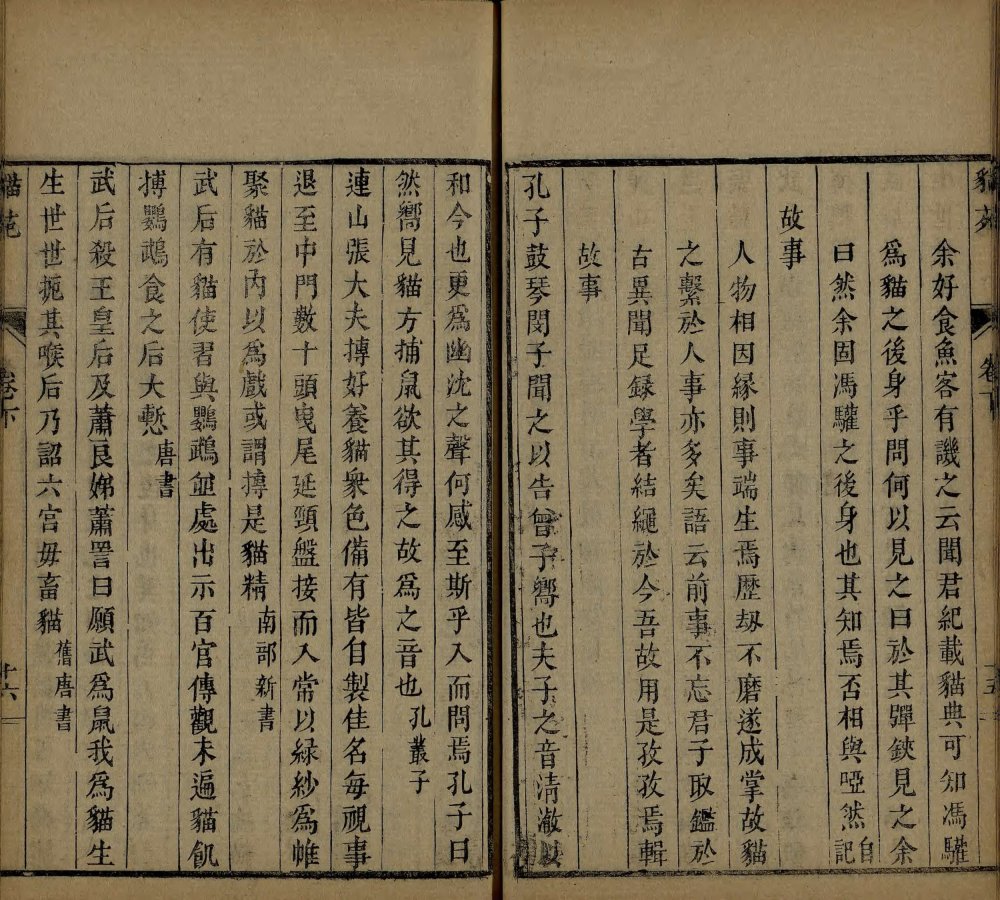 貓苑
卷下
余好食魚客有譏之云聞君紀載貓典可知馮驩
爲貓之後身乎問何以見之曰於其彈鋏見之余
曰然余固馮驩之後身也其知焉否相與啞然自記
故事
人物相因緣則事端生焉歷刼不磨遂成掌故貓
之繫於人事亦多矣語云前事不忘君子取鑑於
古異聞足錄學者結繩於今吾故用是孜孜焉輯
故事
孔子鼓琴閔子聞之以告曾子嚮也夫子之音清澈以
和今也更爲幽沈之聲何感至斯乎入而問焉孔子曰
然嚮見貓方捕鼠欲其得之故爲之音也 孔叢子
連山張大夫摶好養貓衆色備有皆自製佳名每視事
退至中門數十頭曳尾延頸盤接而入常以綠紗爲帷
聚貓於內以爲戲或謂摶是貓精 南部新書
武后有貓使習與鸚鵡並處出示百官傳觀未遍貓飢
搏鸚鵡食之后大慙 唐書
武后殺王皇后及蕭良娣蕭詈曰願武爲鼠我爲貓生
生世世扼其喉后乃詔六宮毋畜貓 舊唐書
貓苑
卷下
十六